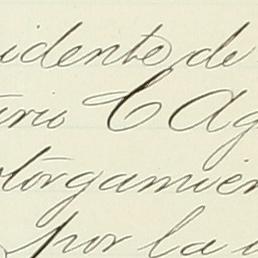 idente de
ario C Ag
otorgamien
por la